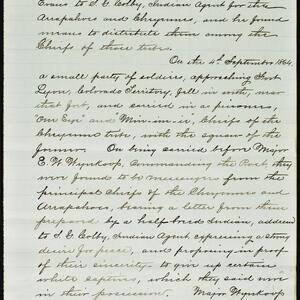 Evans to S. G. Colby, Indian Agent for the
Arrapahoes and Cheyennes, and he found
means to distribute them among the
Chiefs of those tribes.
On the 4th September 1864,
a small party of soldiers, approaching Fort
Lyon, Colorado Territory, fell in with, near
that fort, and carried in as prisoners,
"One Eye" and Min-im-ie, Chiefs of the
Cheyenne tribe, with the squaw of the
former. On being carried before Major
E. W. Wynkoop, Commanding the Post, they
were found to be messengers from the
principal Chiefs of the Cheyennes and
Arrapahoes, bearing a letter from them
prepared by a half bred Indian, addressed
to S. G. Colby, Indian Agent expressing a strong
desire for peace, and proposing in proof
of their sincerity to give up certain
white captives, which they said were
in their possession. Major Wynkoop